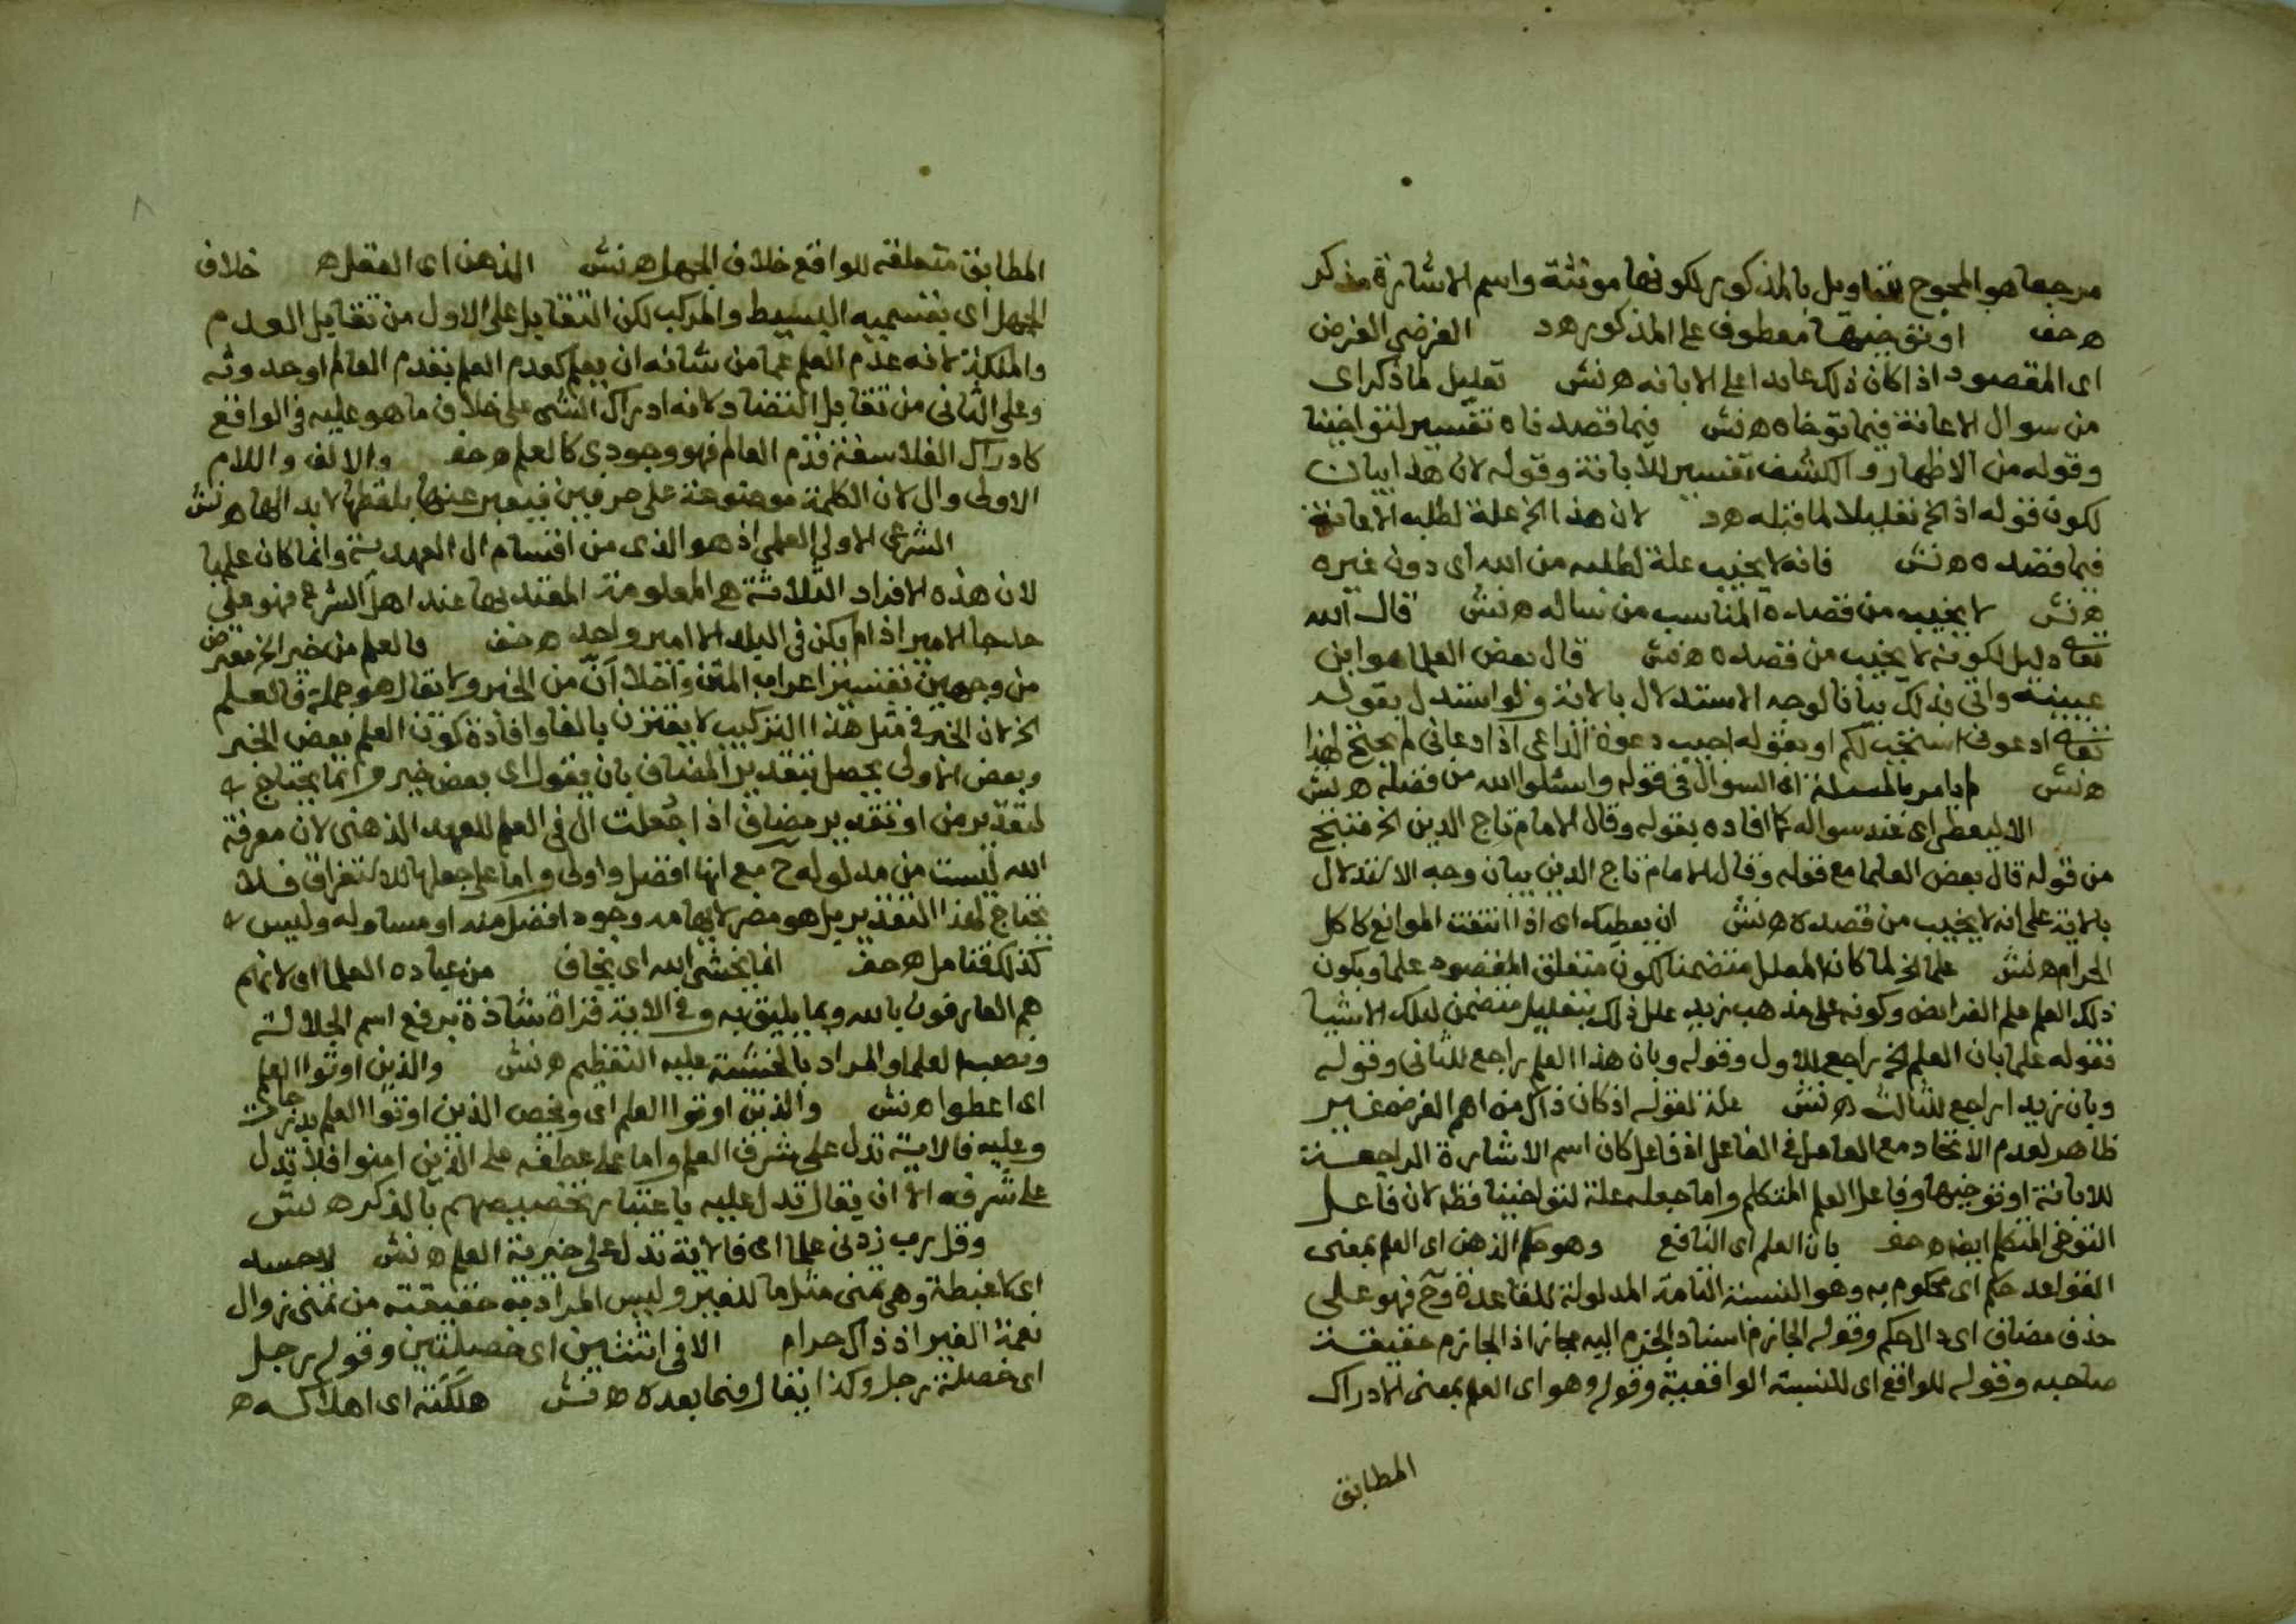 مرجعها هو المحوج بتاويل بالمذكور لكونها مونثة واسم الاشارة مذكر
ه حف او توخيها معطوف على المذكور ه د الغرضي الغرض
اى المقصود اذا كان ذلك عايدا على الابانة ه نش تعليل لما ذكر اى
من سوال الاعانة فيما توخاه ه نش فيما قصدناه تفسير لتواخينا
وقوله من الاظهار والكشف تفسير للابانة وقوله لان هذا بيان
لكون قوله اذ الخ تعليلا لما قبله ه د لان هذا الخ علة لطلبه الاعانة
فيما قصده ه نش فانه لا يخيب علة لطلبه من الله اى دون غيره
ه نش لا يخيب من قصده المناسب من ساله ه نش قال الله
تعالى دليل لكونه لا يخيب من قصده ه نش قال بعض العلما هو ابن
عيينة واتى بذلك بيانا لوجه الاستدلال بالاية ولو استدل بقوله
تعالى ادعونى استجب لكم او بقوله اجيب دعوة الداعى اذا دعانى لم يحتج لهذا
ه نش لم يامر بالمسئلة اى السوال فى قوله واسئلوا الله من فضله ه نش
الا ليعطى اى عند سواله كما افاده بقوله وقال الامام تاج الدين الخ فنتج
من قوله قال بعض العلما مع قوله وقال الامام تاج الدين بيان وجه الاستدلال
بالاية على انه لا يخيب من قصده ه نش ان يعطيك اى اذا انتفت الموانع كاكل
الحرام ه نش علما الخ لما كان المعلل متضمنا لكون متعلق المقصود علما وبكون
ذلك العلم علم الفرايض وكونه على مذهب زيد علل ذلك بتعليل متضمن لتلك الاشيا
فقوله علما بان العلم الخ راجع للاول وقوله وبان هذا العلم راجع للثانى وقوله
وبان زيدا راجع للثالث ه نش علة لقوله اذ كان ذاك من اهم الغرض غير
ظاهر لعدم الاتحاد مع العامل فى الفاعل اذ فاعل كان اسم الاشارة الراجعة
للابانة او توخيها وفاعل العلم المتكلم واما جعله علة لتواخينا فظ لان فاعل
التوخى المتكلم ايضا ه حف بان العلم اى النافع وهو حكم الذهن اى العلم بمعنى
القواعد حكم اى محكوم به وهو النسبة التامة المدلولة للقاعدة وح فهو على
حذف مضاف اى دال حكم وقوله الجازم اسناد الجزم اليه مجاز اذ الجازم حقيقة
صاحبه وقوله للواقع اى للنسبة الواقعية وقوله وهو اى العلم بمعنى الادراك
المطابق
المطابق متعلقه للواقع خلاف الجهل ه نش الذهن اى العقل ه خلاف
الجهل اى بقسميه البسيط والمركب لكن التقابل على الاول من تقابل العدم
والملكة لانه عدم العلم عما من شانه ان يعلم كعدم العلم بقدم العالم او حدوثه
وعلى الثانى من تقابل التضاد لانه ادراك الشى على خلاف ما هو عليه فى الواقع
كادراك الفلاسفة قدم العالم فهو وجودى كالعلم ه حف والالف واللام
الاولى وال لان الكلمة موضوعة على حرفين فيعبر عنها بلفظها لا بد الها ه نش
الشرعى الاولى العلمى اذ هو الذى من اقسام ال العهدية وانما كان علميا
لان هذه الافراد الثلاثة هى المعلومة المعتد بها عند اهل الشرع فهو على
حد جا الامير اذا لم يكن فى البلد الا امير واحد ه حف فالعلم من خير الخ معترض
من وجهين تفسير اعراب المتن واخلا ان من الخبر ولا يقال هو جملة فالعلم
الخ لان الخبر فى مثل هذا التركيب لا يقترن بالفا وافادة كون العلم بعض الخير
وبعض الاولى يحصل بتقدير المضاف بان يقول اى بعض خير وانما يحتاج
لتقدير من او تقدير مضاف اذا جعلت ال فى العلم للعهد الذهنى لان معرفة
الله ليست من مدلوله ح مع انها افضل واولى واما على جعلها للاستغراق فلا
يحتاج لهذا التقدير بل هو مضر لايهامه وجود افضل منه او مساو له وليس
كذلك فتامل ه حف انما يخشى الله اى يخاف من عباده العلما اى لانهم
هم العارفون بالله وبما يليق به وفى الاية قراة شاذة برفع اسم الجلالة
ونصب العلما والمراد بالخشية عليه التعظيم ه نش والذين اوتوا العلم
اى اعطوا ه نش والذين اوتوا العلم اى ويخص الذين اوتوا العلم بدرجات
وعليه فالاية تدل على شرف العلم واما على عطفه على الذين امنوا فلا تدل
على شرفه الا ان يقال تدل عليه باعتبار تخصيصهم بالذكر ه نش
وقل رب زدنى علما اى فالاية تدل على خيرية العلم ه نش لا حسد
اى لا غبطة وهى تمنى مثل ما للغير وليس المراد به حقيقته من تمنى زوال
نعمة الغير اذ ذاك حرام الا فى اثنتين اى خصلتين وقوله رجل
اى خصلة رجل وكذا يقال فيما بعده ه نش هلكته اى اهلاكه ه